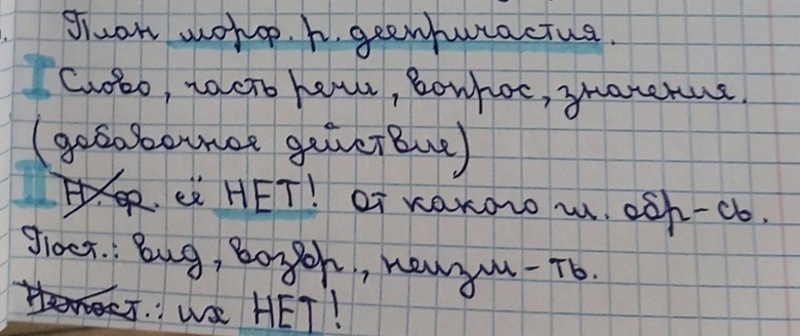 План морф. р. деепричастия.
I Слово, часть речи, вопрос, значения.
(добавочное действие)
II Н.ф. её НЕТ! от какого гл. обр-сь.
Пост.: вид, возвр., неизм-ть.
Непост.: их НЕТ!